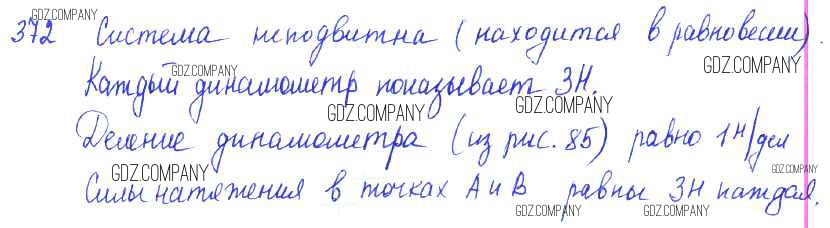 372 Система неподвижна (находится в равновесии).
GDZ.COMPANY GDZ.COMPANY
Каждый динамометр показывает 3Н.
GDZ.COMPANY GDZ.COMPANY
GDZ.COMPANY GDZ.COMPANY
Деление динамометра (из рис. 85) равно 1 Н/дел
GDZ.COMPANY GDZ.COMPANY
Силы натяжения в точках А и В равны 3Н каждая.
GDZ.COMPANY GDZ.COMPANY